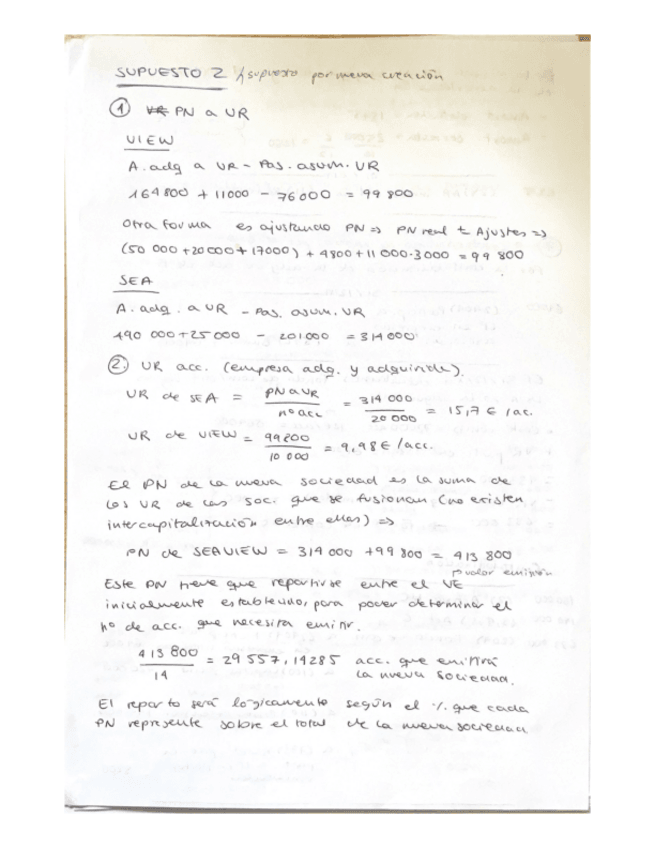 SUPUESTO 2 / supuesto por nueva creación
① PN a VR
VIEW
A. adq a VR - Pas. asum. VR
164800 + 11000 - 76000 = 99 800
Otra forma es ajustando PN => PN real ± Ajustes =>
(50 000 + 20000 + 17000) + 4800 + 11 000 - 3000 = 99 800
SEA
A. adq. a VR - Pas. asum. VR
490 000 + 25 000 - 201000 = 314 000
② VR acc. (empresa adq. y adquirida).
VR de SEA = PN a VR / nº acc = 314 000 / 20 000 = 15,7 € /ac.
VR de VIEW = 99800 / 10 000 = 9,98 € /acc.
El PN de la nueva sociedad es la suma de
los VR de las soc. que se fusionan (no existen
intercapitalización entre ellas) =>
PN de SEAVIEW = 314 000 + 99 800 = 413 800
valor emisión
Este PN tiene que repartirse entre el VE
inicialmente establecido, para poder determinar el
nº de acc. que necesita emitir.
413 800 / 14 = 29 557,14285 acc. que emitirá
la nueva sociedad.
El reparto será lógicamente según el % que cada
PN represente sobre el total de la nueva sociedad